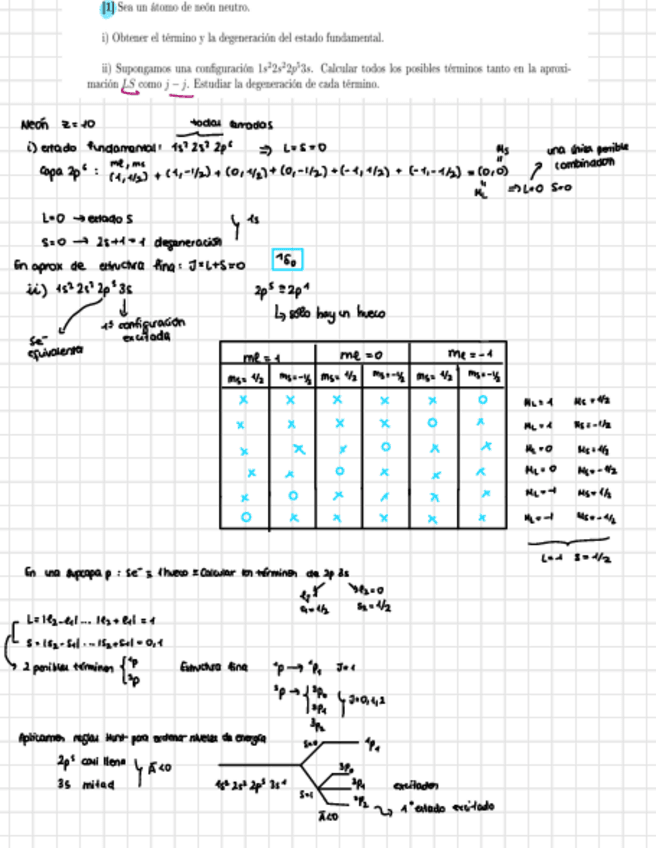 [1] Sea un átomo de neón neutro.
i) Obtener el término y la degeneración del estado fundamental.
ii) Supongamos una configuración 1s²2s²2p⁵3s. Calcular todos los posibles términos tanto en la aproxi-
mación LS como j − j. Estudiar la degeneración de cada término.
Neón z=10
todas cerradas
i) estado fundamental: 1s² 2s² 2p⁶ ⇒ L=S=0
Capa 2p⁶ : (1,1/2) + (1,-1/2) + (0,1/2) + (0,-1/2) + (-1,1/2) + (-1,-1/2) = (0,0)
mℓ, ms
Ms
ML
una única posible combinación
⇒ L=0 S=0
L=0 → estado S
S=0 → 2s+1=1 degeneración
} 1s
En aprox de estructura fina: J=L+S=0
¹S₀
ii) 1s² 2s² 2p⁵ 3s
2p⁵ ≡ 2p¹
↳ solo hay un hueco
5e⁻ equivalentes
1ª configuración excitada
mℓ=1 mℓ=0 mℓ=-1
ms=1/2 ms=-1/2 ms=1/2 ms=-1/2 ms=1/2 ms=-1/2
x x x x x o ML=1 Ms=1/2
x x x x o x ML=1 Ms=-1/2
x x x o x x ML=0 Ms=1/2
x x o x x x ML=0 Ms=-1/2
x o x x x x ML=-1 Ms=1/2
o x x x x x ML=-1 Ms=-1/2
L=1 S=1/2
En una subcapa p : 5e⁻ ≡ 1 hueco ≡ Calcular los términos de 2p 3s
ℓ₁=1 ℓ₂=0
s₁=1/2 s₂=1/2
L=|ℓ₂-ℓ₁| ... |ℓ₂+ℓ₁| = 1
S=|s₂-s₁| ... |s₂+s₁| = 0,1
2 posibles términos { ¹P ³P
Estructura fina ¹P → ¹P₁ J=1
³P → { ³P₀ ³P₁ ³P₂ } J=0,1,2
Aplicamos reglas Hund para ordenar niveles de energía
2p⁵ casi llena
3s mitad
} A<0
1s² 2s² 2p⁵ 3s¹
S=0 ¹P₁
S=1 ³P₀
³P₁ excitados
³P₂ → 1° estado excitado
A<0